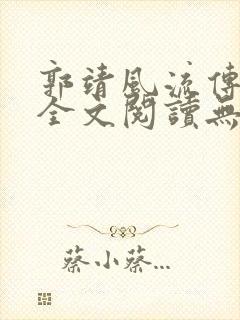 郭靖風流傳
全文閱讀無
蔡小蔡...